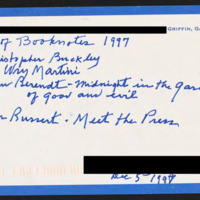 GRIFFIN, G
of Booknotes 1997
stopher Buckley
Wry Martini
Berendt - Midnight in the Gar
of good and evil
Russert - Meet the Press
Dec 5 1997